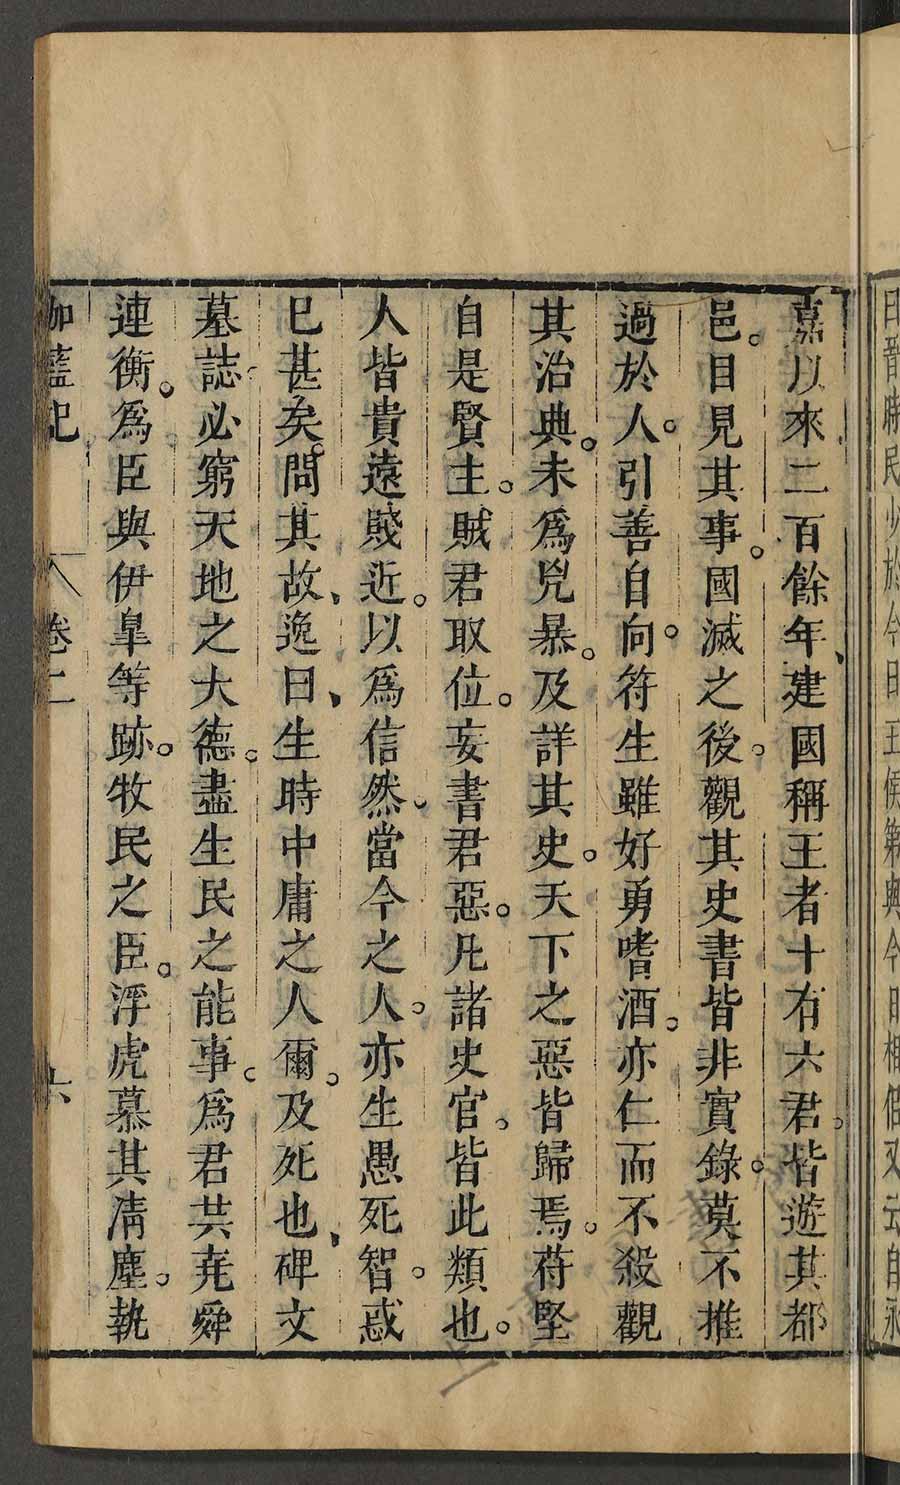 日晉時民少於今日王侯第與今日相似又云自永
嘉以來二百餘年、建國稱王者十有六君。皆遊其都
邑。目見其事。國滅之後。觀其史書皆非實錄。莫不推
過於人。引善自向。符生雖好勇嗜酒。亦仁而不殺觀
其治典。未爲兇暴。及詳其史。天下之惡皆歸焉。苻堅
自是賢主。賊君取位。妄書君惡。凡諸史官。皆此類也。
人皆貴遠賤近。以爲信然。當今之人。亦生愚死智。惑
已甚矣。問其故、逸曰、生時中庸之人爾。及死也、碑文
墓誌必窮天地之大德。盡生民之能事。爲君共堯舜
連衡。爲臣與伊臯等跡。牧民之臣。浮虎慕其淸塵。執
伽藍記 卷二 六